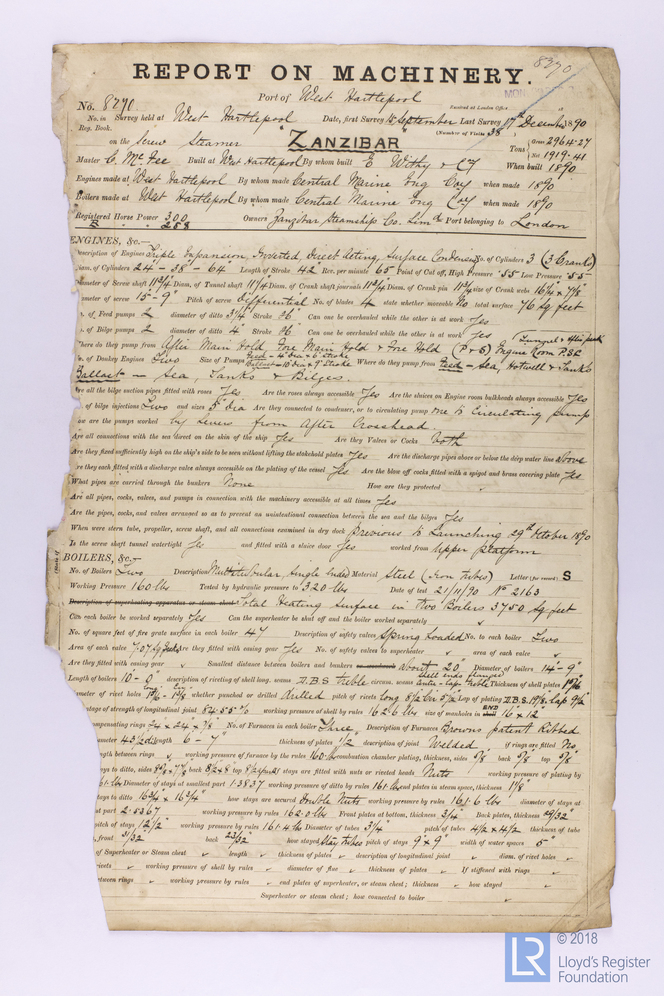 8290
REPORT ON MACHINERY.
Port of West Hartlepool
Received at London Office
No. 8290
No. in Survey held at West Hartlepool Date, first Survey 15 September Last Survey 17th December 1890
Reg. Book. (Number of Visits 38)
on the Screw Steamer "ZANZIBAR" Tons Gross 2964.27 Net 1919.41
Master C. McFee Built at West Hartlepool By whom built E Withy & Co When built 1890
Engines made at West Hartlepool By whom made Central Marine Eng Coy when made 1890
Boilers made at West Hartlepool By whom made Central Marine Eng Coy when made 1890
Registered Horse Power 300 Owners Zanzibar Steamship Co. Limd Port belonging to London
258
ENGINES, &c.—
Description of Engines Triple Expansion, Inverted, Direct Acting, Surface Condensing No. of Cylinders 3 (3 Cranks)
Diam. of Cylinders 24 - 38 - 64 Length of Stroke 42" Rev. per minute 65 Point of Cut off, High Pressure .55 Low Pressure .55
Diameter of Screw shaft 11 3/4" Diam. of Tunnel shaft 11 1/4" Diam. of Crank shaft journals 11 3/4" Diam. of Crank pin 11 3/4" size of Crank webs 16 1/4 x 7 7/8"
ameter of screw 15 - 9" Pitch of screw Differential No. of blades 4 state whether moveable No total surface 76 sq feet
o. of Feed pumps 2 diameter of ditto 3 1/4" Stroke 26" Can one be overhauled while the other is at work Yes
o. of Bilge pumps 2 diameter of ditto 4" Stroke 26" Can one be overhauled while the other is at work Yes
here do they pump from After Main Hold, Fore Main Hold & Fore Hold (P & S) Engine Room P.S.C (Tunnel & After peak
o. of Donkey Engines Two Size of Pumps Feed - 4" dia & 6" stroke Ballast - 10" dia & 9" stroke Where do they pump from Feed - Sea, Hotwell & Tanks
Ballast - Sea, Tanks & Bilges.
Are all the bilge suction pipes fitted with roses Yes Are the roses always accessible Yes Are the sluices on Engine room bulkheads always accessible Yes
of bilge injections Two and sizes 5" dia Are they connected to condenser, or to circulating pump one to Circulating pump
ow are the pumps worked by levers from After Crosshead
Are all connections with the sea direct on the skin of the ship Yes Are they Valves or Cocks both
Are they fixed sufficiently high on the ship's side to be seen without lifting the stokehold plates Yes Are the discharge pipes above or below the deep water line above
re they each fitted with a discharge valve always accessible on the plating of the vessel Yes Are the blow off cocks fitted with a spigot and brass covering plate Yes
What pipes are carried through the bunkers None How are they protected
Are all pipes, cocks, valves, and pumps in connection with the machinery accessible at all times Yes
Are the pipes, cocks, and valves arranged so as to prevent an unintentional connection between the sea and the bilges Yes
When were stern tube, propeller, screw shaft, and all connections examined in dry dock Previous to Launching 29th October 1890
Is the screw shaft tunnel watertight Yes and fitted with a sluice door Yes worked from upper platform
BOILERS, &c.—
No. of Boilers Two Description Multitubular, Single Ended Material Steel (Iron tubes) Letter (for record) S
Working Pressure 160 lbs Tested by hydraulic pressure to 320 lbs Date of test 21/11/90 No 2163
Description of superheating apparatus or steam chest Total Heating Surface in Two Boilers 3750 sq feet
Can each boiler be worked separately Yes Can the superheater be shut off and the boiler worked separately
No. of square feet of fire grate surface in each boiler 47 Description of safety valves Spring Loaded No. to each boiler Two
Area of each valve 7.07 sq inches Are they fitted with easing gear Yes No. of safety valves to superheater area of each valve
Are they fitted with easing gear Smallest distance between boilers and bunkers about 20" Diameter of boilers 14' - 9"
Length of boilers 10' - 0" description of riveting of shell long. seams D.B.S. treble circum. seams shell ends flanged centre - lap treble Thickness of shell plates 1 5/16
ameter of rivet holes whether punched or drilled drilled pitch of rivets Lap of plating
ntage of strength of longitudinal joint 84.55 % working pressure of shell by rules 162.6 lbs size of manholes in END 16 x 12"
ompensating rings 24" x 24" x 7/8" No. of Furnaces in each boiler Three Description of Furnaces Browns patent Ribbed
ameter 43 1/2 length 6' - 7" thickness of plates 1/2 description of joint Welded if rings are fitted No
ngth between rings working pressure of furnace by the rules 160 combustion chamber plating, thickness, sides 9/8 back 9/8 top 9/8"
ays to ditto, sides back top If stays are fitted with nuts or riveted heads Nuts working pressure of plating by
Diameter of stays at smallest part 1.3837 working pressure of ditto by rules 161 lbs end plates in steam space, thickness 1 1/8
tays to ditto 16 3/4 x 16 3/4" how stays are secured Double Nuts working pressure by rules 161.6 lbs diameter of stays at
st part 2.5367 working pressure by rules 162.3 lbs Front plates at bottom, thickness 3/4" Back plates, thickness 29/32"
pitch of stays 12 1/2" working pressure by rules 161.4 lbs Diameter of tubes 3 1/4" pitch of tubes 4 1/2 x 4 1/2 thickness of tube
front 31/32 back 23/32" how stayed Stay tubes pitch of stays 9" x 9" width of water spaces 5"
of Superheater or Steam chest length thickness of plates description of longitudinal joint diam. of rivet holes
rivets working pressure of shell by rules diameter of flue thickness of plates If stiffened with rings
etween rings working pressure by rules end plates of superheater, or steam chest; thickness how stayed
Superheater or steam chest; how connected to boiler
LR
© 2018
Lloyd's Register
Foundation